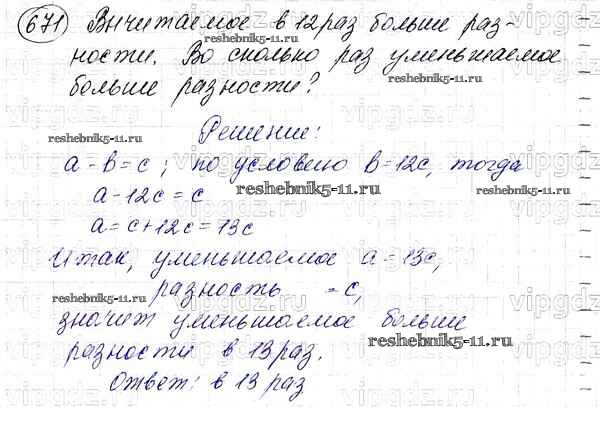 671 Вычитаемое в 12 раз больше раз-
ности. Во сколько раз уменьшаемое
больше разности?
reshebnik5-11.ru
reshebnik5-11.ru
Решение:
a - b = c ; по условию b = 12c, тогда
reshebnik5-11.ru
reshebnik5-11.ru
a - 12c = c
a = c + 12c = 13c
Итак, уменьшаемое a = 13c,
reshebnik5-11.ru
разность = c,
значит уменьшаемое больше
reshebnik5-11.ru
разности в 13 раз.
Ответ: в 13 раз
vipgdz.ru